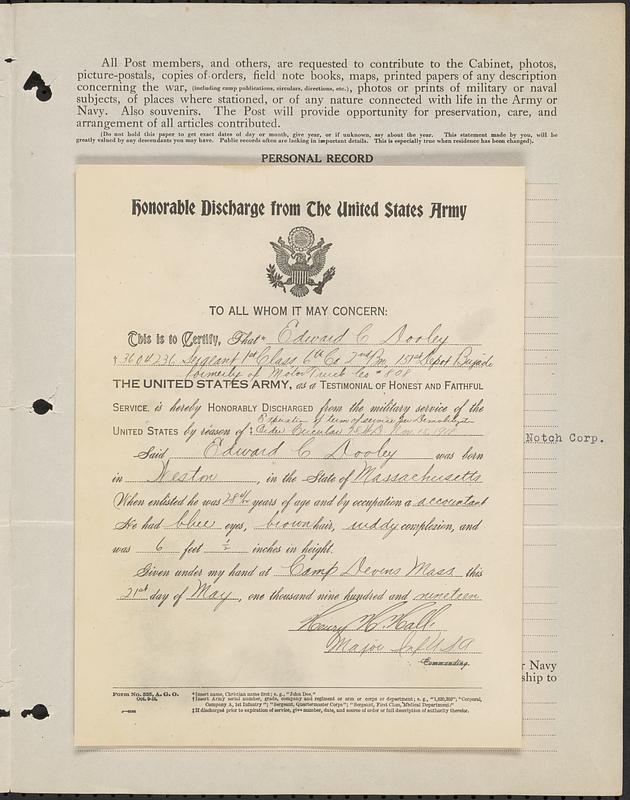 All Post members, and others, are requested to contribute to the Cabinet, photos,
picture-postals, copies of orders, field note books, maps, printed papers of any description
concerning the war, (including camp publications, circulars, directions, etc.), photos or prints of military or naval
subjects, of places where stationed, or of any nature connected with life in the Army or
Navy. Also souvenirs. The Post will provide opportunity for preservation, care, and
arrangement of all articles contributed.
(Do not hold this paper to get exact dates of day or month, give year, or if unknown, say about the year. This statement made by you, will be
greatly valued by any descendants you may have. Public records often are lacking in important details. This is especially true when residence has been changed).
PERSONAL RECORD
Honorable Discharge from The United States Army
TO ALL WHOM IT MAY CONCERN:
This is to Certify, That* Edward C Dooley
† 3604236 Sergeant 1st Class 6th Co 2nd Bn 151st Depot Brigade
formerly of Motor Truck Co # 808
THE UNITED STATES ARMY, as a TESTIMONIAL OF HONEST AND FAITHFUL
SERVICE, is hereby HONORABLY DISCHARGED from the military service of the
Expiration of term of service per Demobilization
UNITED STATES by reason of ‡ Order Circular
Said Edward C Dooley was born
in Weston, in the State of Massachusetts
When enlisted he was 28 years of age and by occupation a accountant
He had blue eyes, brown hair, ruddy complexion, and
was 6 feet ½ inches in height.
Given under my hand at Camp Devens Mass. this
21st day of May, one thousand nine hundred and nineteen
Henry W. Hall
Major Inf USA
Commanding.
Form No. 525, A. G. O.
Oct. 9-18.
*Insert name, Christian name first; e. g., "John Doe."
†Insert Army serial number, grade, company and regiment or arm or corps or department; e. g., "1,620,302"; "Corporal,
Company A, 1st Infantry"; "Sergeant, Quartermaster Corps"; "Sergeant, First Class, Medical Department."
‡If discharged prior to expiration of service, give number, date, and source of order or full description of authority therefor.
Notch Corp.
r Navy
ship to